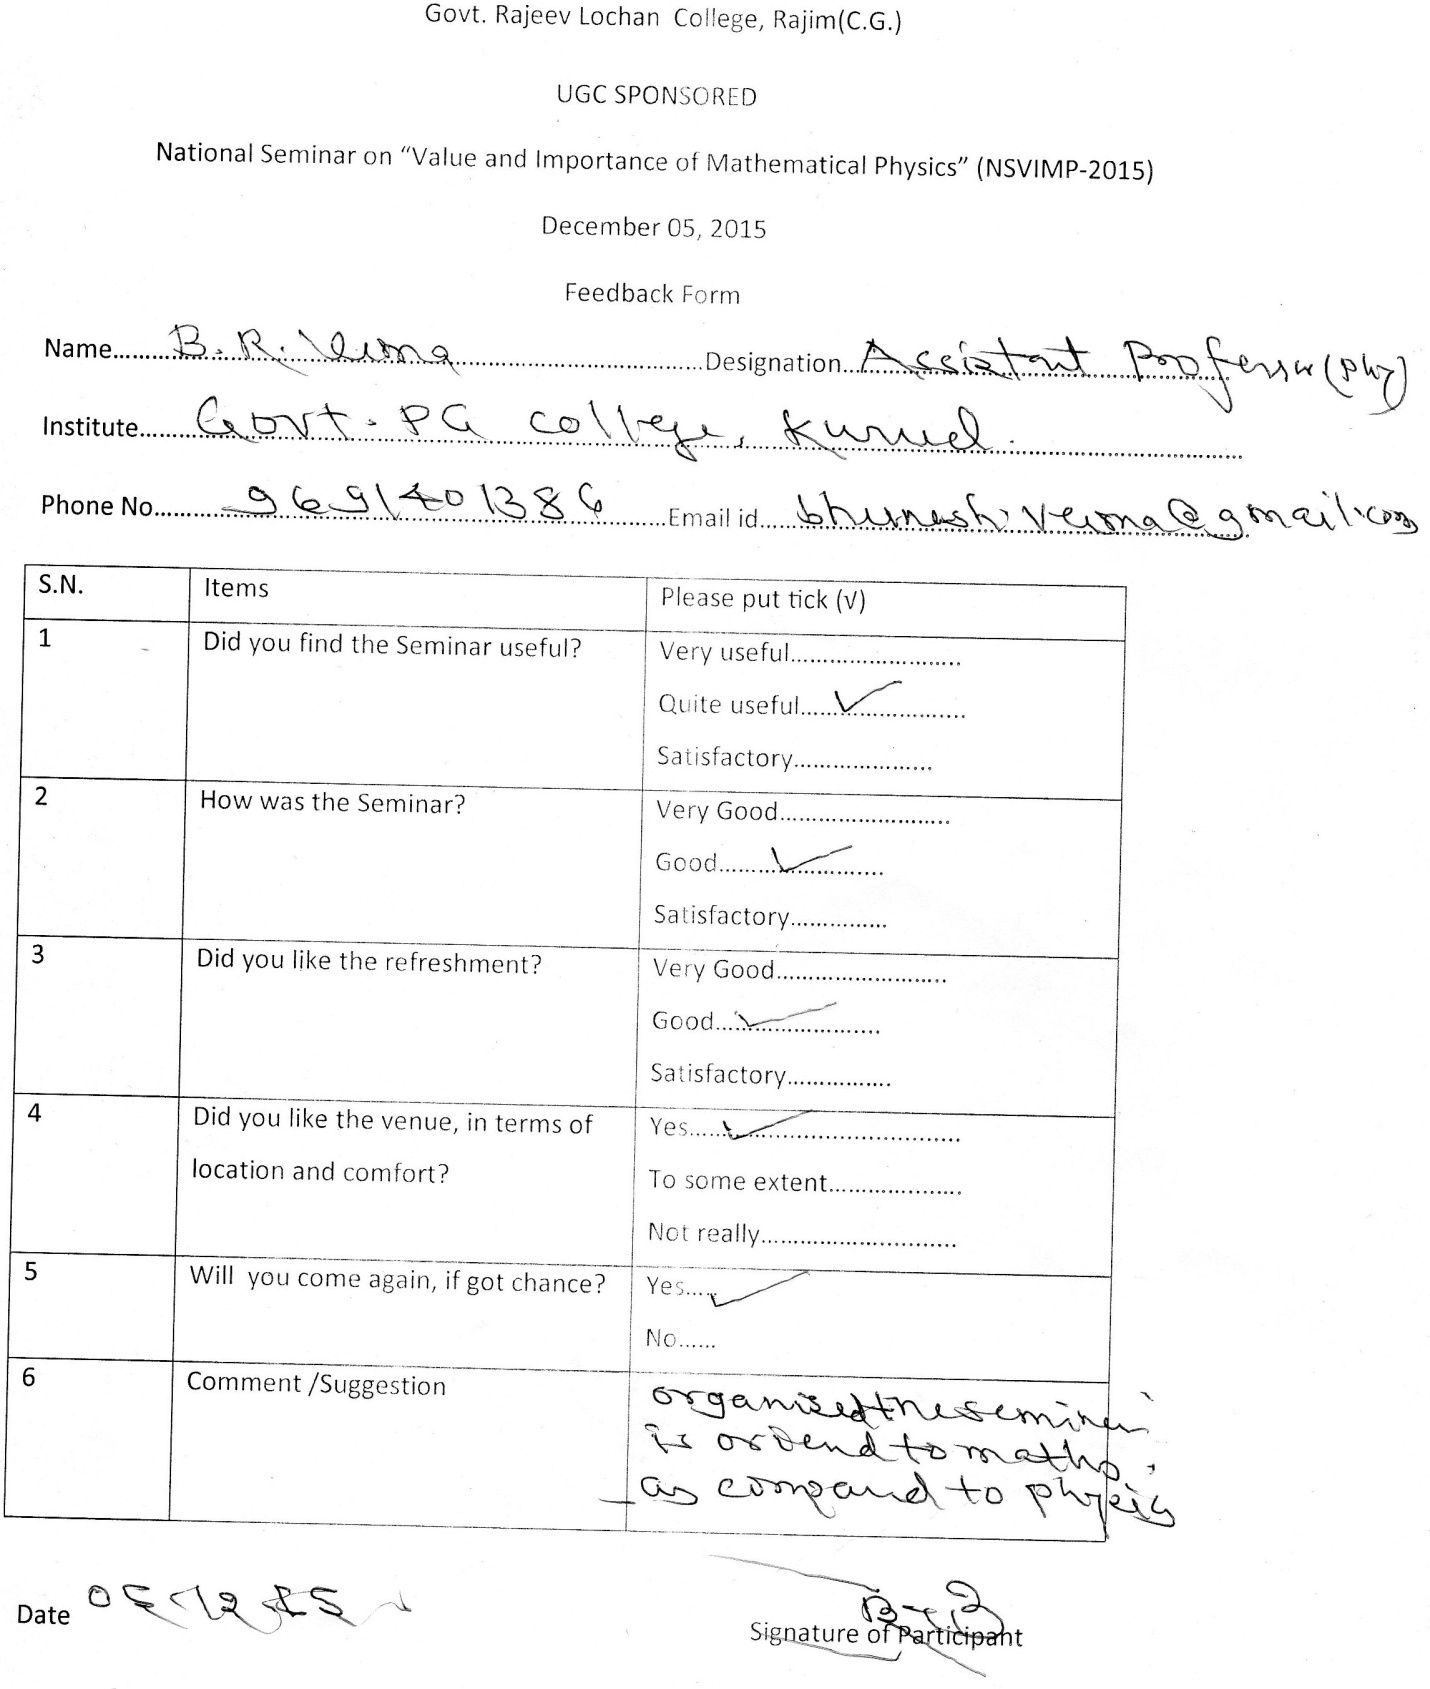 Govt. Rajeev Lochan College, Rajim(C.G.)
UGC SPONSORED
National Seminar on “Value and Importance of Mathematical Physics” (NSVIMP-2015)
December 05, 2015
Feedback Form
Name.........B.R. Verma..............................Designation...Assistant Professor (Phy)
Institute......Govt. PG College, Kurud..............................
Phone No......9691401386......Email id.....bhunesh.verma@gmail.com
S.N. Items Please put tick (√)
1 Did you find the Seminar useful? Very useful..........................
Quite useful.....✓....................
Satisfactory.....................
2 How was the Seminar? Very Good..........................
Good.........✓...............
Satisfactory...............
3 Did you like the refreshment? Very Good..........................
Good...✓.....................
Satisfactory................
4 Did you like the venue, in terms of Yes.....✓..............................
location and comfort?
To some extent....................
Not really..............................
5 Will you come again, if got chance? Yes.....✓
No......
6 Comment /Suggestion organised the seminar
is to maths
as compared to physics
Date 05-12-15
Signature of Participant